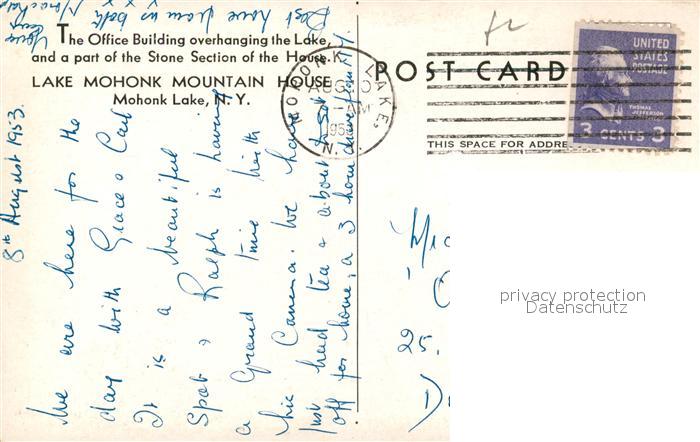 The Office Building overhanging the Lake,
and a part of the Stone Section of the House.
LAKE MOHONK MOUNTAIN HOUSE
Mohonk Lake, N. Y.
POST CARD
THIS SPACE FOR ADDRE
MOHONK LAKE,
AUG
AM
195
N.
UNITED
STATES
POSTAGE
THOMAS
JEFFERSON
3 CENTS 3
8th August 1953.
We are here for the
day with Grace & Carl
It is a beautiful
Spot & Ralph is having
a Grand time with
his Camera. We have
just had tea & about to set
off for home, a 3 hour drive from N.Y.
Best love from us both
25.
privacy protection
Datenschutz